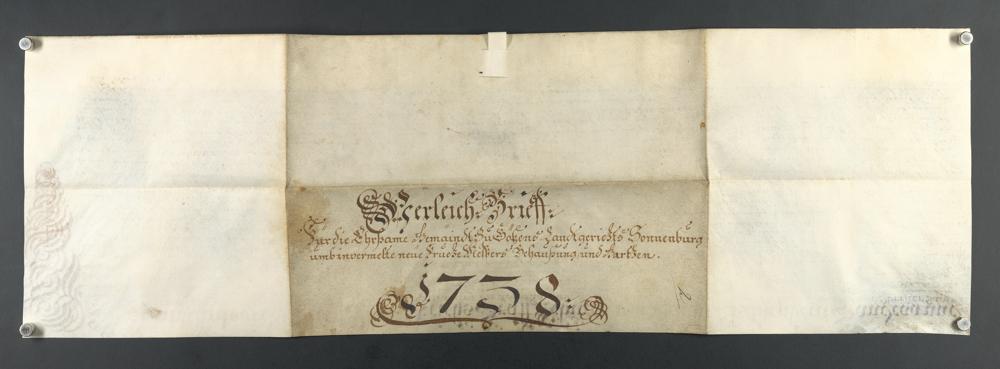 Verleich: Brieff:
Für die Ehrsame Gemaindt Zu Götzens Landtgerichts Sonnenburg
umb invermelte neue Fruehe Messers Behausung und Garthen.
1738: